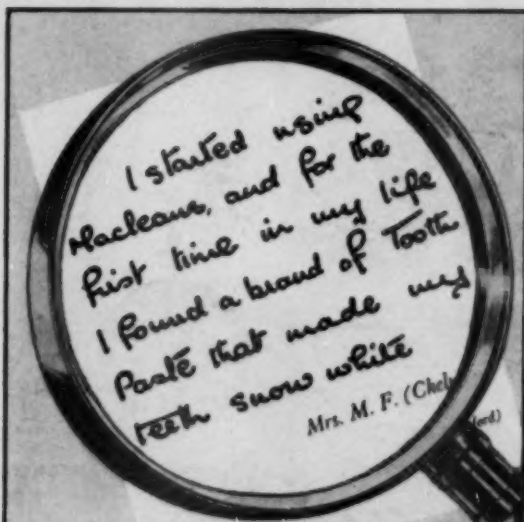 I started using
Macleans, and for the
first time in my life
I found a brand of Tooth
Paste that made my
teeth snow white
Mrs. M. F. (Chel
ford)